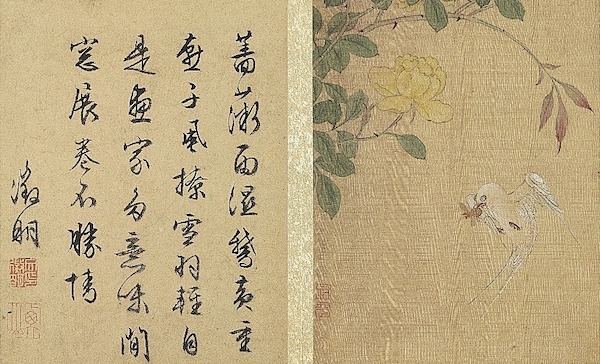 薔薇雨濕鵞黃重
燕子風撩雪羽輕自
是畫家多意味閒
窓展卷不勝情
徵明